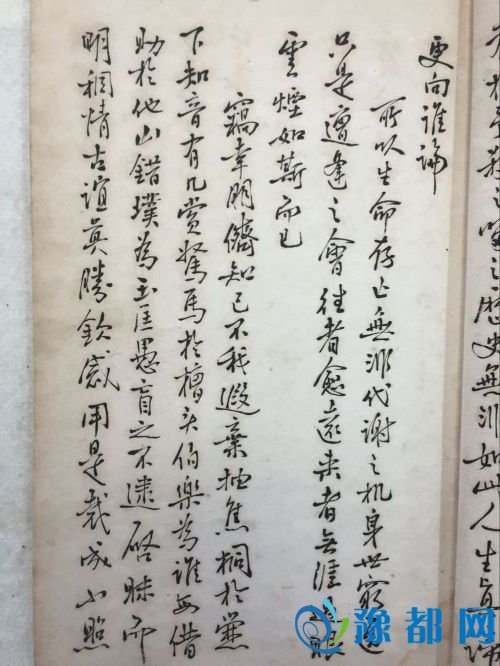 歷史無非如此人生
更向誰論
所以生命存亡無非代謝之机身世窮通
只是遭逢之會往者愈遠來者無涯眼
雲煙如斯而已
竊幸朋儕知己不我遐棄抽焦桐於爨
下知音有几賞駑馬於槽头伯樂為誰每借
助於他山錯璞為玉匡愚盲之不逮啓昧而
明稠情古誼真勝欽感用是裁成小照
豫都网